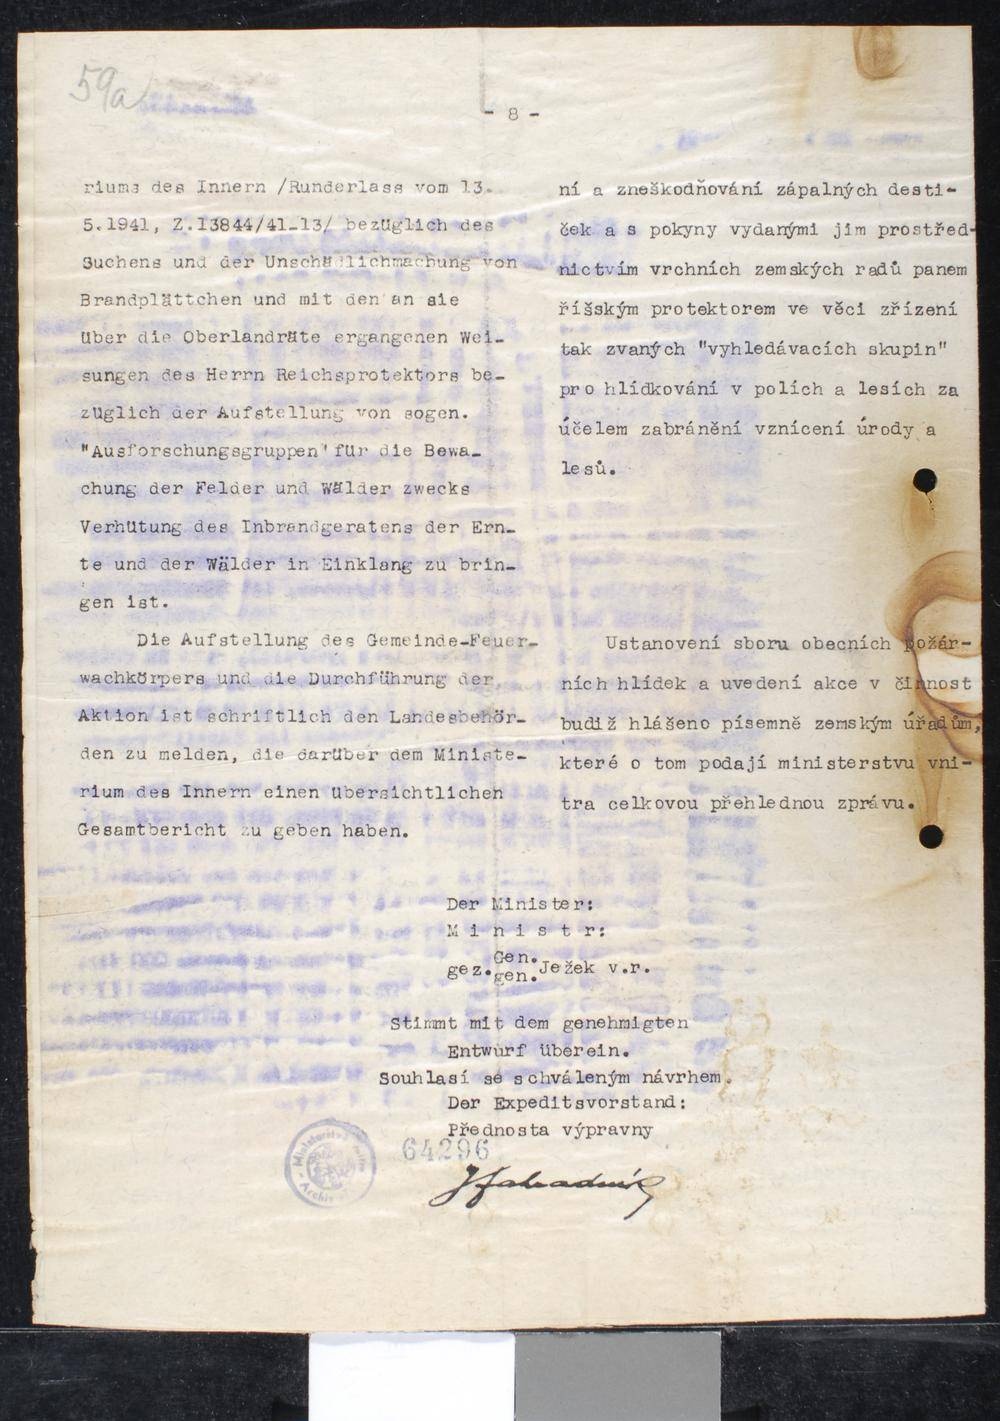 59a
- 8 -
riums des Innern /Runderlass vom 13.
5.1941, Z.13844/41-13/ bezüglich des
Suchens und der Unschädlichmachung von
Brandplättchen und mit den an sie
über die Oberlandräte ergangenen Wei-
sungen des Herrn Reichsprotektors be-
züglich der Aufstellung von sogen.
"Ausforschungsgruppen" für die Bewa-
chung der Felder und Wälder zwecks
Verhütung des Inbrandgeratens der Ern-
te und der Wälder in Einklang zu brin-
gen ist.
Die Aufstellung des Gemeinde-Feuer-
wachkörpers und die Durchführung der
Aktion ist schriftlich den Landesbehör-
den zu melden, die darüber dem Ministe-
rium des Innern einen übersichtlichen
Gesamtbericht zu geben haben.
ní a zneškodňování zápalných desti-
ček a s pokyny vydanými jim prostřed-
nictvím vrchních zemských radů panem
říšským protektorem ve věci zřízení
tak zvaných "vyhledávacích skupin"
pro hlídkování v polích a lesích za
účelem zabránění vznícení úrody a
lesů.
Ustanovení sboru obecních požár-
ních hlídek a uvedení akce v činnost
budiž hlášeno písemně zemským úřadům,
které o tom podají ministerstvu vni-
tra celkovou přehlednou zprávu.
Der Minister:
M i n i s t r:
Gen.
gez. gen. Ježek v.r.
Stimmt mit dem genehmigten
Entwurf überein.
Souhlasí se schváleným návrhem.
Der Expeditsvorstand:
Přednosta výpravny
64296